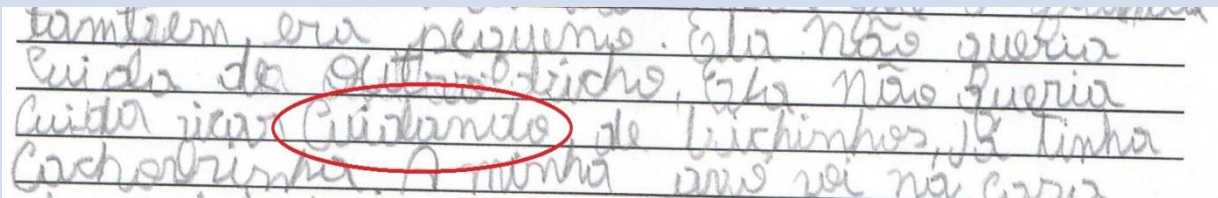 tambem era pequeno. Ela não queria
Cuida de outro bicho, Ela não queria
Cuida ficar Cuidando de bichinhos, Já tinha
Cachorrinha. A minha avó foi na